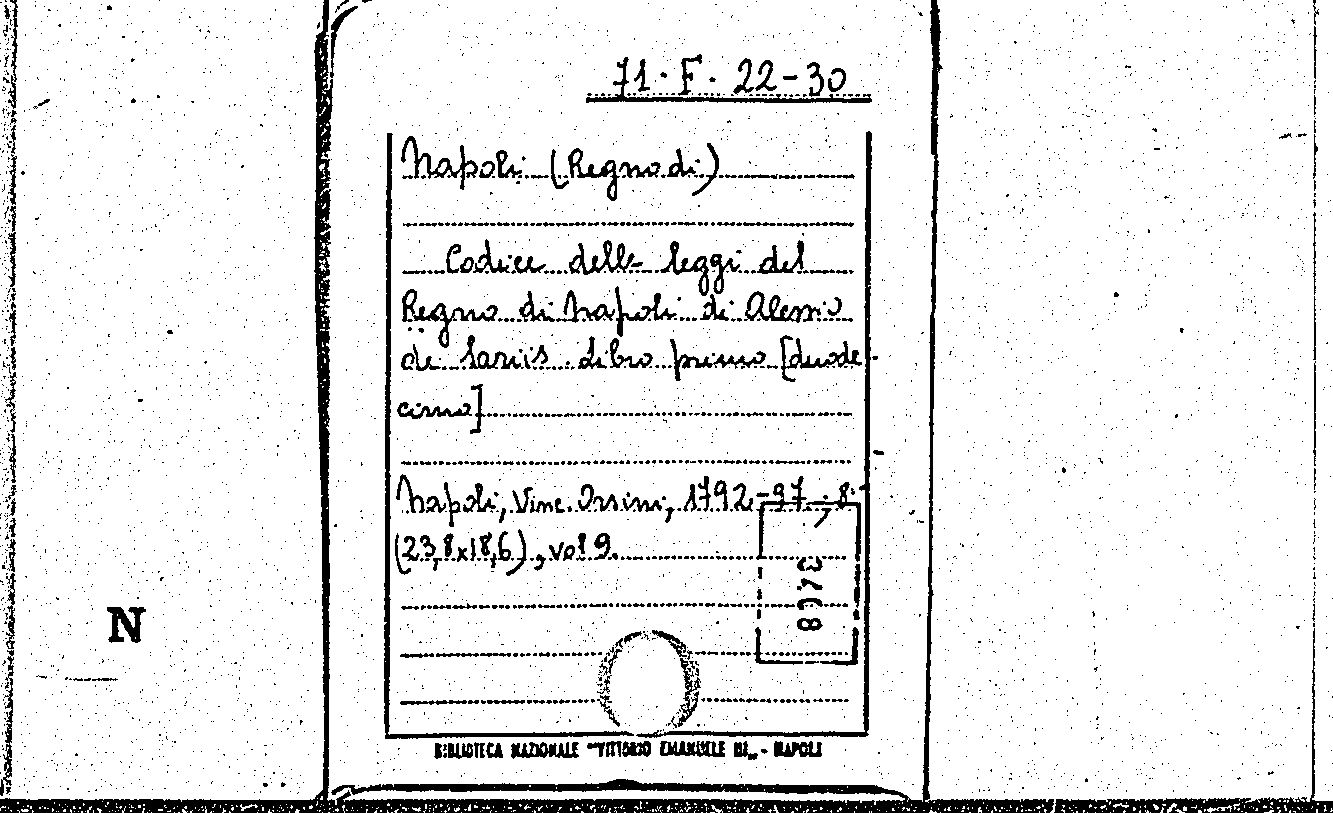 71 · F · 22-30
Napoli (Regno di)
Codice delle leggi del
Regno di Napoli di Alessio
de Sariis. Libro primo [duode-
cimo]
Napoli, Vinc. Orsini, 1792-97; 8.
(23,8x18,6), vol 9.
3498
N
BIBLIOTECA NAZIONALE "VITTORIO EMANUELE III„ - NAPOLI